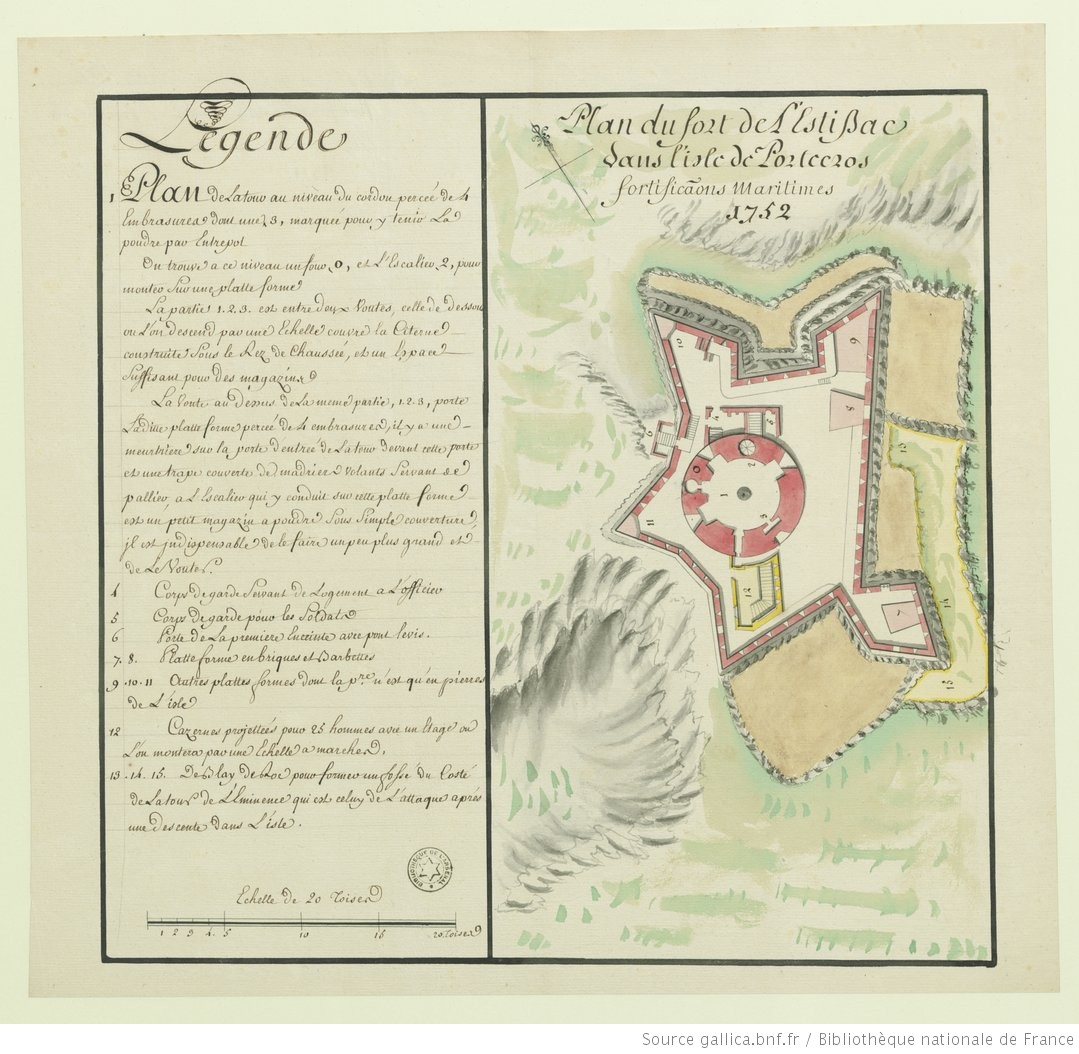 Légende
1 Plan de La tour au niveau du cordon percée de 4
Embrasures dont une 3, marquée pour y tenir La
poudre par Entrepot
On trouve a ce niveau un four 0, et L'Escalier 2, pour
monter Sur une platte forme
La partie 1.2.3. est entre deux Voutes, celle de dessou
ou L'on descend par une Echelle couvre la Citerne
construite Sous le Rez de Chaussée, et un Espace
Suffisant pour des magazins
La Voute au dessus de La meme partie, 1.2.3, porte
La ditte platte forme percée de 4 embrasures, il y a une
meurtriere sur la porte d'entrée de La tour devant cette porte
et une trape couverte de madriers Volants Servant de
pallier, a L'Escalier qui y conduit sur cette platte forme
est un petit magazin a poudre Sous Simple couverture,
il est indispensable de le faire un peu plus grand et
de Le Vouter.
4 Corps de garde Servant de Logement a L'officier
5 Corps de garde pour les Soldats
6 Porte de La premiere Enceinte avec pont levis.
7. 8. Platte forme en briques et Barbettes
9 .10. 11 Autres plattes formes dont la pre. n'est qu'en pierres
de L'isle
12 Cazernes projettées pour 25 hommes avec un Etage ou
L'on montera par une Echelle a marches.
13. 14. 15. Deblay de Roc pour former un fossé du Costé
de La tour de L'Eminence qui est celuy de L'attaque après
une descente dans L'isle.
BIBLIOTHEQUE DE L'ARSENAL
Echelle de 20 Toises
1 2 3 4 5 10 15 20 Toises
Plan du fort de L'Estißac
dans l'isle de Portecros
fortificãons Maritimes
1752
10
9
8
6
4
5
2
0
1
3
11
12
7
13
14
15
Source gallica.bnf.fr / Bibliothèque nationale de France